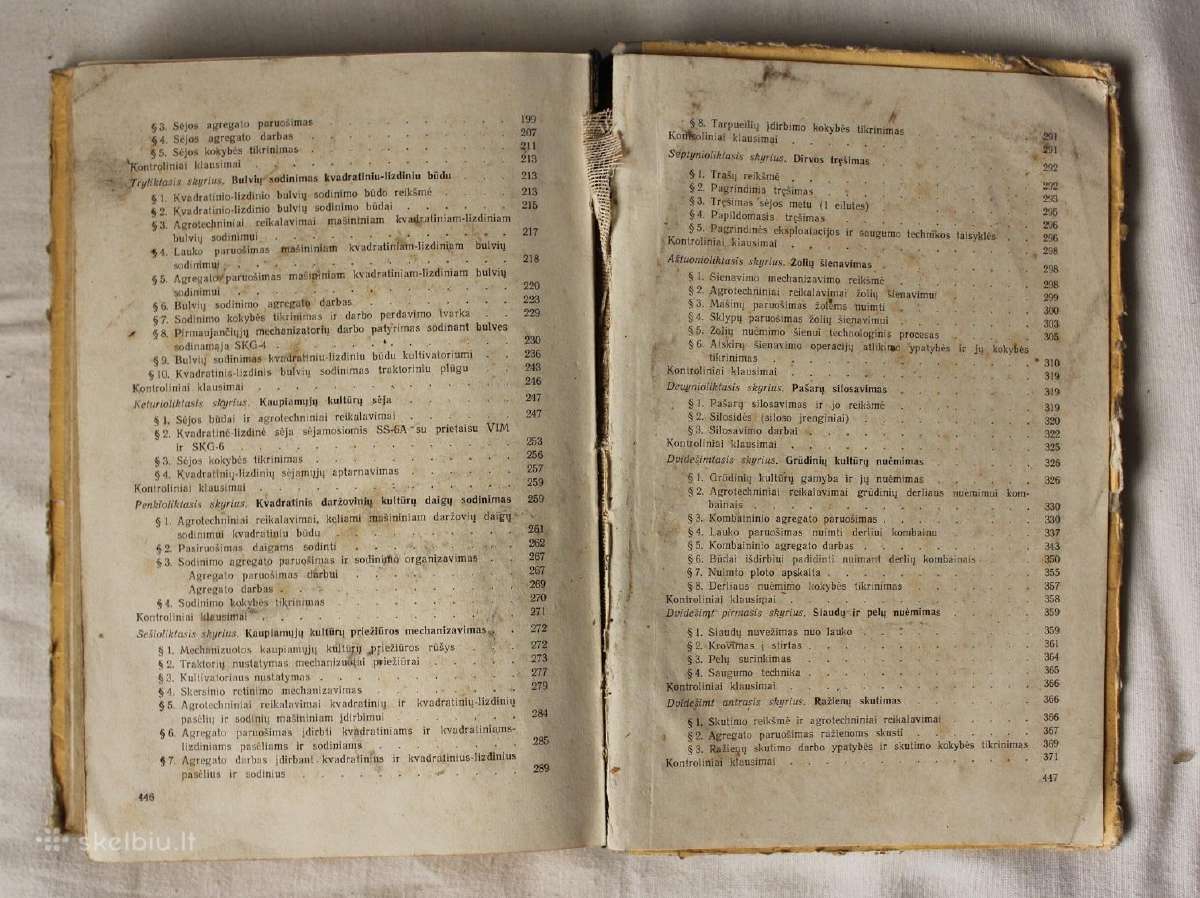 § 3. Sėjos agregato paruošimas 199
§ 4. Sėjos agregato darbas 207
§ 5. Sėjos kokybės tikrinimas 211
Kontroliniai klausimai 213
Tryliktasis skyrius. Bulvių sodinimas kvadratiniu-lizdiniu būdu 213
§ 1. Kvadratinio-lizdinio bulvių sodinimo būdo reikšmė 213
§ 2. Kvadratinio-lizdinio bulvių sodinimo būdai 215
§ 3. Agrotechniniai reikalavimai mašininiam kvadratiniam-lizdiniam
bulvių sodinimui 217
§ 4. Lauko paruošimas mašininiam kvadratiniam-lizdiniam bulvių
sodinimui 218
§ 5. Agregato paruošimas mašininiam kvadratiniam-lizdiniam bulvių
sodinimui 220
§ 6. Bulvių sodinimo agregato darbas 223
§ 7. Sodinimo kokybės tikrinimas ir darbo perdavimo tvarka 229
§ 8. Pirmaujančiųjų mechanizatorių darbo patyrimas sodinant bulves
sodinamąja SKG-4 230
§ 9. Bulvių sodinimas kvadratiniu-lizdiniu būdu kultivatoriumi 236
§ 10. Kvadratinis-lizdinis bulvių sodinimas traktoriniu plūgu 243
Kontroliniai klausimai 246
Keturioliktasis skyrius. Kaupiamųjų kultūrų sėja 247
§ 1. Sėjos būdai ir agrotechniniai reikalavimai 247
§ 2. Kvadratinė-lizdinė sėja sėjamosiomis SS-6A su prietaisu VIM
ir SKG-6 253
§ 3. Sėjos kokybės tikrinimas 256
§ 4. Kvadratinių-lizdinių sėjamųjų aptarnavimas 257
Kontroliniai klausimai 259
Penkioliktasis skyrius. Kvadratinis daržovinių kultūrų daigų sodinimas 259
§ 1. Agrotechniniai reikalavimai, keliami mašininiam daržovių daigų
sodinimui kvadratiniu būdu 261
§ 2. Pasiruošimas daigams sodinti 262
§ 3. Sodinimo agregato paruošimas ir sodinimo organizavimas 267
Agregato paruošimas darbui 267
Agregato darbas 269
§ 4. Sodinimo kokybės tikrinimas 270
Kontroliniai klausimai 271
Šešioliktasis skyrius. Kaupiamųjų kultūrų priežiūros mechanizavimas 272
§ 1. Mechanizuotos kaupiamųjų kultūrų priežiūros rūšys 272
§ 2. Traktorių nustatymas mechanizuotai priežiūrai 273
§ 3. Kultivatoriaus nustatymas 277
§ 4. Skersinio retinimo mechanizavimas 279
§ 5. Agrotechniniai reikalavimai kvadratinių ir kvadratinių-lizdinių
pasėlių ir sodinių mašininiam įdirbimui 284
§ 6. Agregato paruošimas įdirbti kvadratiniams ir kvadratiniams-
lizdiniams pasėliams ir sodiniams 285
§ 7. Agregato darbas įdirbant kvadratinius ir kvadratinius-lizdinius
pasėlius ir sodinius 289
446
§ 8. Tarpueilių įdirbimo kokybės tikrinimas 291
Kontroliniai klausimai 291
Septynioliktasis skyrius. Dirvos tręšimas 292
§ 1. Trąšų reikšmė 292
§ 2. Pagrindinis tręšimas 293
§ 3. Tręšimas sėjos metu (į eilutes) 295
§ 4. Papildomasis tręšimas 296
§ 5. Pagrindinės eksploatacijos ir saugumo technikos taisyklės 296
Kontroliniai klausimai 298
Aštuonioliktasis skyrius. Žolių šienavimas 298
§ 1. Šienavimo mechanizavimo reikšmė 298
§ 2. Agrotechniniai reikalavimai žolių šienavimui 299
§ 3. Mašinų paruošimas žolėms nuimti 300
§ 4. Sklypų paruošimas žolių šienavimui 303
§ 5. Žolių nuėmimo šienui technologinis procesas 305
§ 6. Atskirų šienavimo operacijų atlikimo ypatybės ir jų kokybės
tikrinimas 310
Kontroliniai klausimai 319
Devynioliktasis skyrius. Pašarų silosavimas 319
§ 1. Pašarų silosavimas ir jo reikšmė 319
§ 2. Silosidės (siloso įrenginiai) 320
§ 3. Silosavimo darbai 322
Kontroliniai klausimai 325
Dvidešimtasis skyrius. Grūdinių kultūrų nuėmimas 326
§ 1. Grūdinių kultūrų gamyba ir jų nuėmimas 326
§ 2. Agrotechniniai reikalavimai grūdinių derliaus nuėmimui kom-
bainais 330
§ 3. Kombaininio agregato paruošimas 330
§ 4. Lauko paruošimas nuimti derlių kombainu 337
§ 5. Kombaininio agregato darbas 343
§ 6. Būdai išdirbiui padidinti nuimant derlių kombainais 350
§ 7. Nuimto ploto apskaita 355
§ 8. Derliaus nuėmimo kokybės tikrinimas 357
Kontroliniai klausimai 358
Dvidešimt pirmasis skyrius. Šiaudų ir pelų nuėmimas 359
§ 1. Šiaudų nuvežimas nuo lauko 359
§ 2. Krovimas į stirtas 361
§ 3. Pelų surinkimas 364
§ 4. Saugumo technika 365
Kontroliniai klausimai 366
Dvidešimt antrasis skyrius. Ražienų skutimas 366
§ 1. Skutimo reikšmė ir agrotechniniai reikalavimai 366
§ 2. Agregato paruošimas ražienoms skusti 367
§ 3. Ražienų skutimo darbo ypatybės ir skutimo kokybės tikrinimas 369
Kontroliniai klausimai 371
447
skelbiu.lt